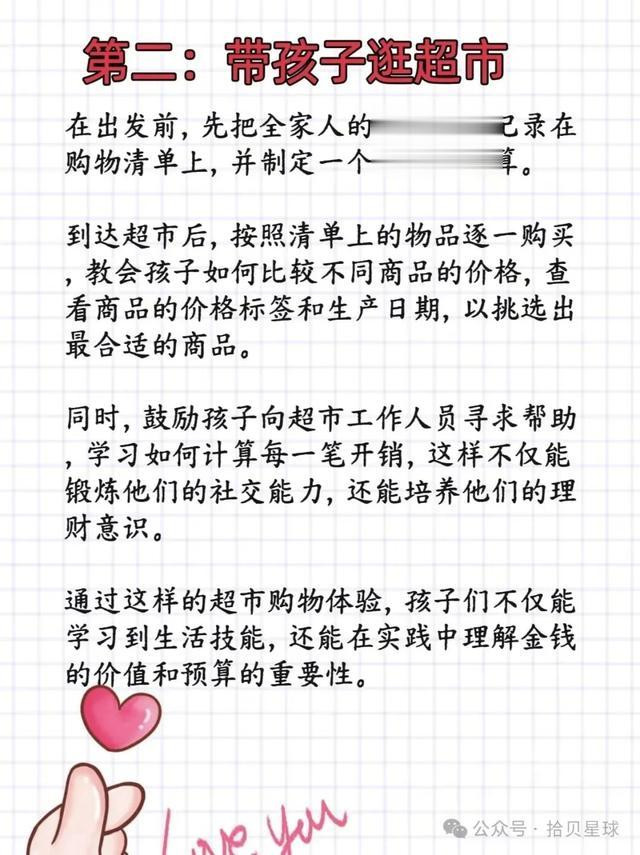 第二：带孩子逛超市
在出发前，先把全家人的 录在
购物清单上，并制定一个 算。
到达超市后，按照清单上的物品逐一购买
，教会孩子如何比较不同商品的价格，查
看商品的价格标签和生产日期，以挑选出
最合适的商品。
同时，鼓励孩子向超市工作人员寻求帮助
，学习如何计算每一笔开销，这样不仅能
锻炼他们的社交能力，还能培养他们的理
财意识。
通过这样的超市购物体验，孩子们不仅能
学习到生活技能，还能在实践中理解金钱
的价值和预算的重要性。
Love You
公众号·拾贝星球